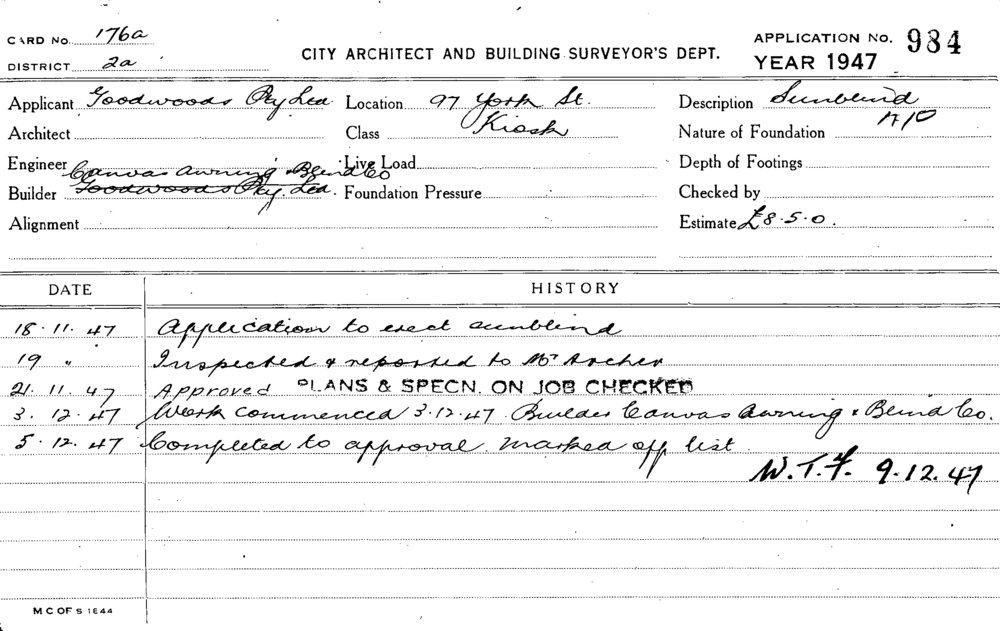 CARD No. 176a
DISTRICT 2a
CITY ARCHITECT AND BUILDING SURVEYOR'S DEPT.
APPLICATION No. 984
YEAR 1947
Applicant Goodwoods Pty Ltd. Location 97 York St. Description Sunblind
Architect Class Kiosk Nature of Foundation A/O
Engineer Live Load Depth of Footings
Canvas Awning & Blind Co
Builder Goodwoods Pty. Ltd. Foundation Pressure Checked by
Alignment Estimate £8.5.0.
DATE HISTORY
18.11.47 Application to erect sunblind
19 " Inspected & reported to Mr Archer
21.11.47 Approved PLANS & SPECN. ON JOB CHECKED
3.12.47 Work commenced 3.12.47 Builder Canvas Awning & Blind Co.
5.12.47 Completed to approval. Marked off list
W.T.F. 9.12.47
M C OF S 1844